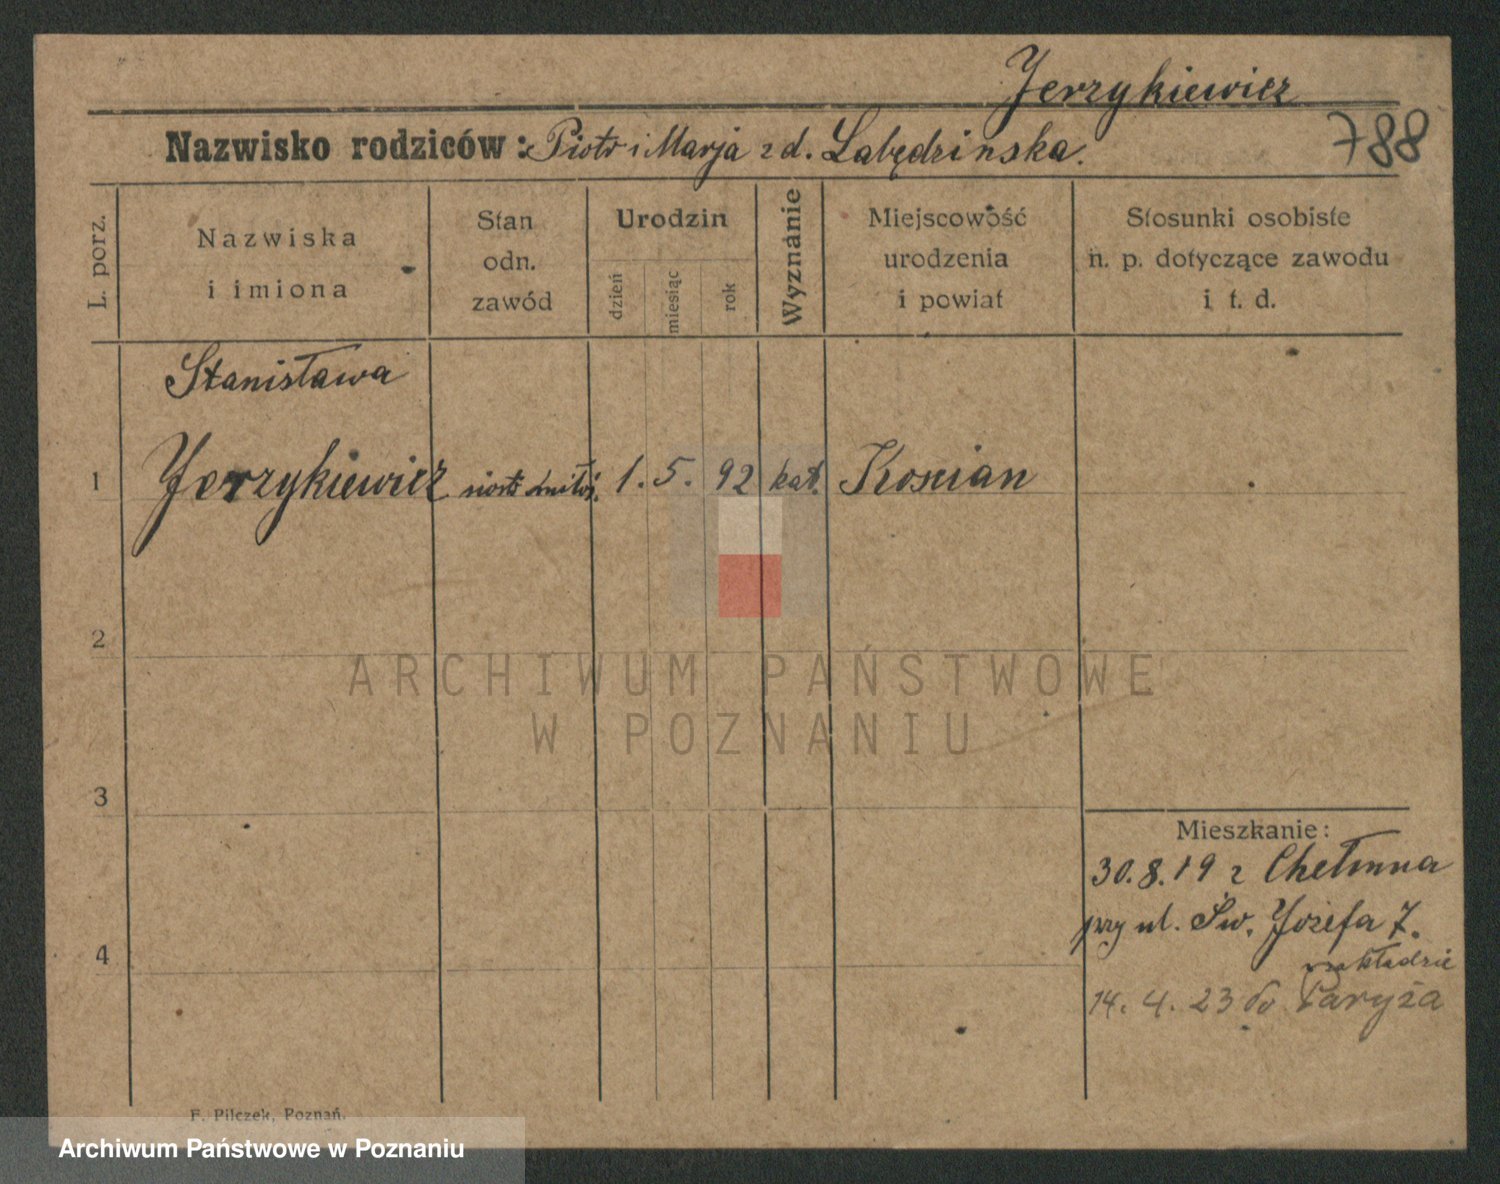 Jerzykiewicz
Nazwisko rodziców: Piotr i Marja z d. Labędzinska.
788
L. porz.
Nazwiska
i imiona
Stan
odn.
zawód
Urodzin
dzień
miesiąc
rok
Wyznanie
Miejscowość
urodzenia
i powiat
Stosunki osobiste
n. p. dotyczące zawodu
i t. d.
Stanisława
1 Jerzykiewicz siostr miłoś. 1. 5. 92 kat. Koscian
2
ARCHIWUM PAŃSTWOWE
W POZNANIU
3
Mieszkanie:
30.8.19 z Chełmna
przy ul. Św. Józefa 7.
4
w zakładzie
14. 4. 23 do Paryża
F. Pilczek, Poznań.
Archiwum Państwowe w Poznaniu